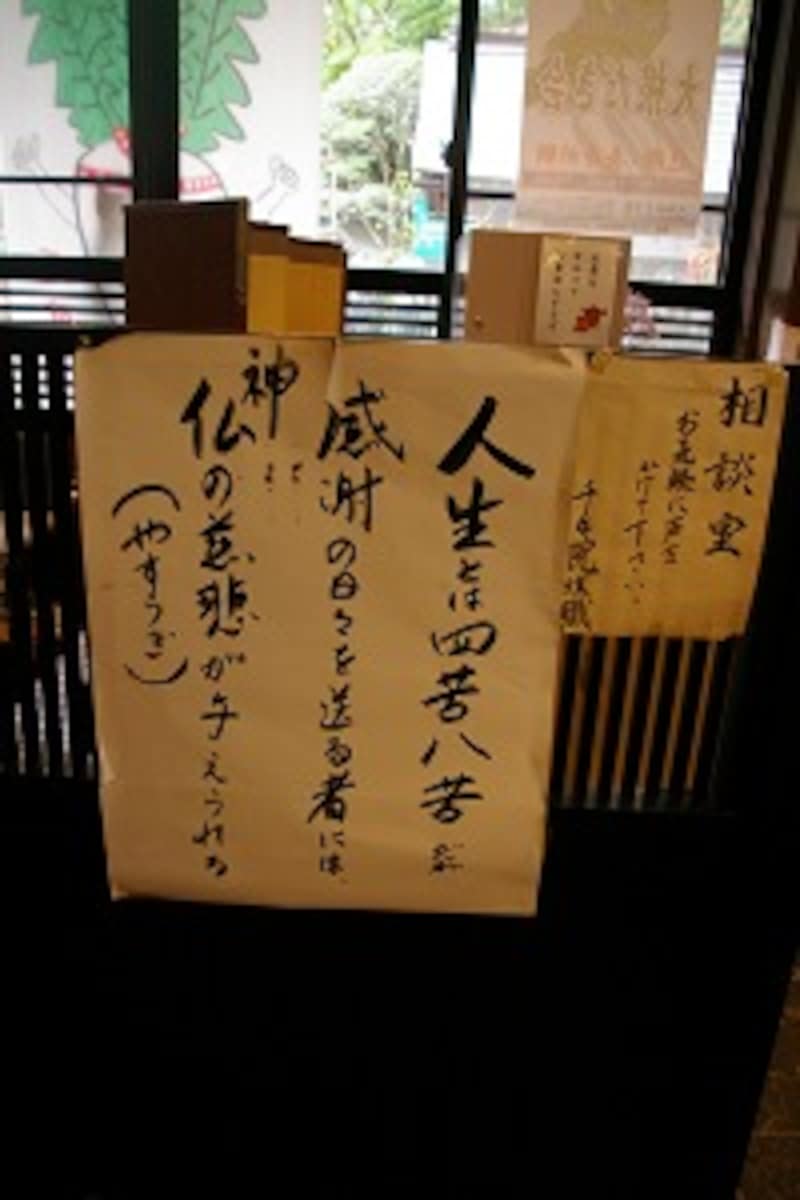 相談室
お気軽に声を
かけて下さい。
千手院住職
人生とは四苦八苦だが
感謝の日々を送る者には、
神
仏の慈悲が与えられる
(やすらぎ)
大根だき会